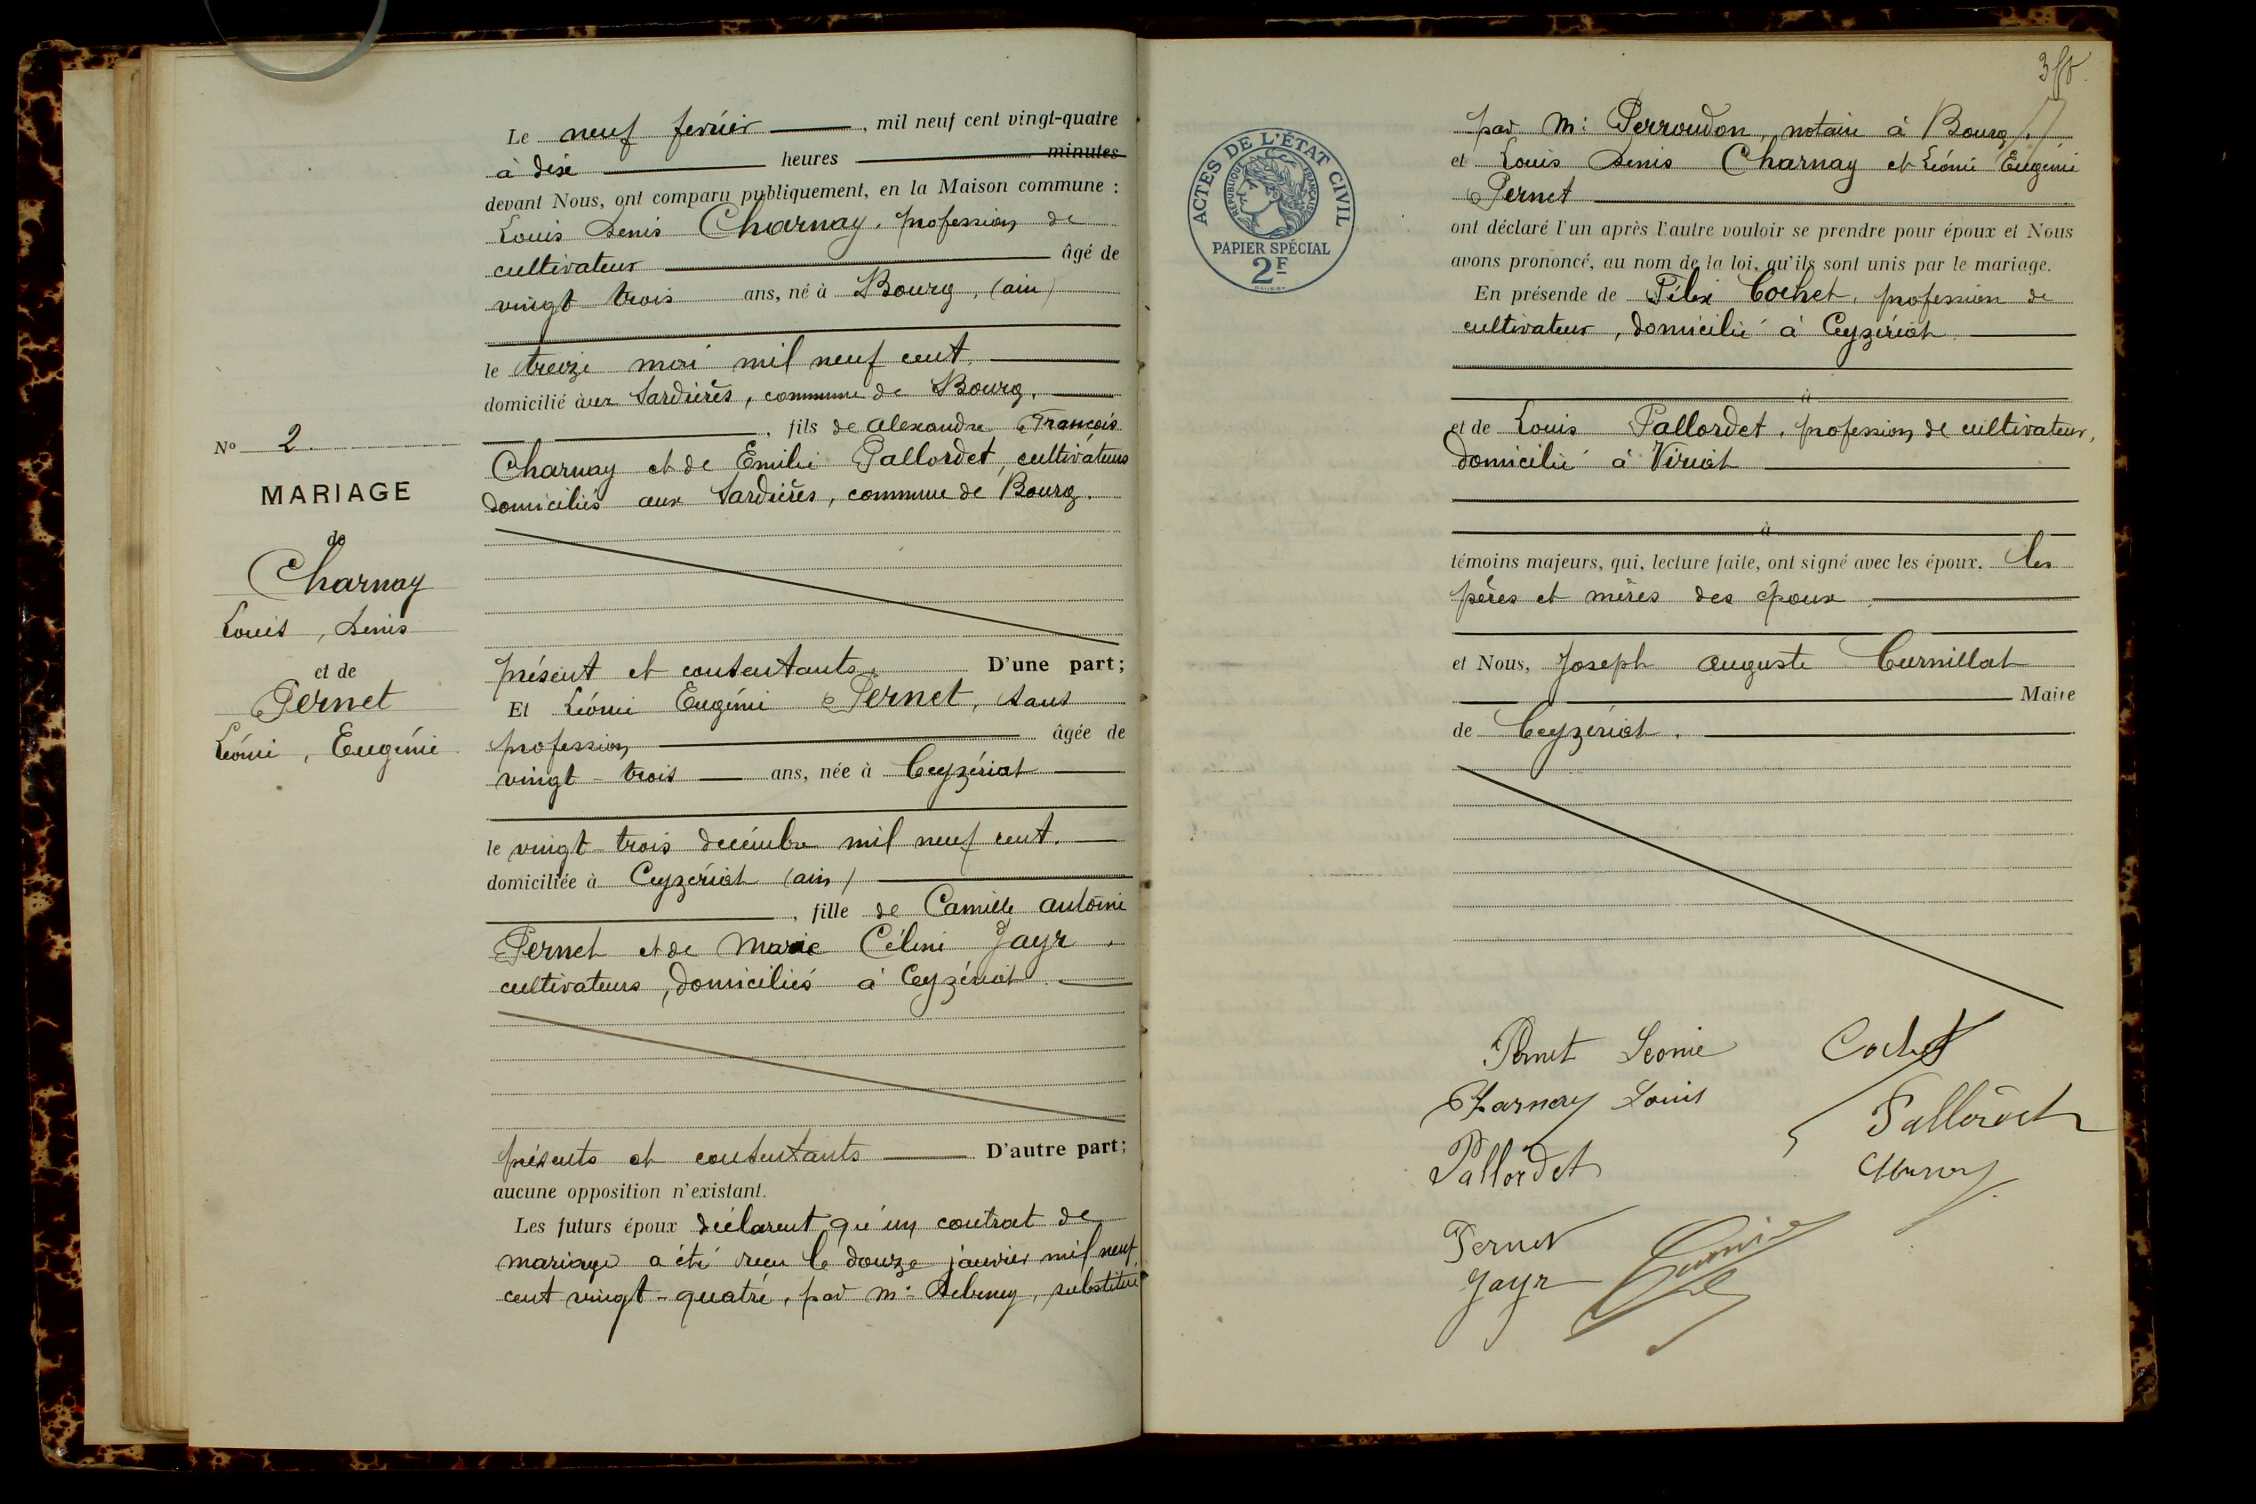 Le neuf février, mil neuf cent vingt-quatre
à dix heures minutes
devant Nous, ont comparu publiquement, en la Maison commune :
Louis Denis Charnay, profession de
cultivateur âgé de
vingt trois ans, né à Bourg, (ain)
le treize mai mil neuf cent
domicilié aux Sardières, commune de Bourg,
, fils de Alexandre François
Charnay et de Emilie Pallordet, cultivateurs
domiciliés aux Sardières, commune de Bourg.
présent et consentants. D'une part;
Et Léonie Eugénie Pernet, sans
profession âgée de
vingt-trois ans, née à Ceyzériat
le vingt-trois décembre mil neuf cent.
domiciliée à Ceyzériat (ain)
, fille de Camille antoine
Pernet et de Marie Céline Jayr,
cultivateurs, domiciliés à Ceyzériat
présents et consentants D'autre part;
aucune opposition n'existant.
Les futurs époux déclarent qu'un contrat de
mariage a été reçu le douze janvier mil neuf
cent vingt-quatre, par Me substitué
No 2.
MARIAGE
de
Charnay
Louis, Denis
et de
Pernet
Léonie, Eugénie
ACTES DE L'ÉTAT CIVIL
RÉPUBLIQUE FRANÇAISE
PAPIER SPÉCIAL
2F
par Me Perroudon, notaire à Bourg
et Louis Denis Charnay et Léonie Eugénie
Pernet
ont déclaré l'un après l'autre vouloir se prendre pour époux et Nous
avons prononcé, au nom de la loi, qu'ils sont unis par le mariage.
En présende de Félix Cochet, profession de
cultivateur, domicilié à Ceyzériat
à
et de Louis Pallordet, profession de cultivateur,
domicilié à Viriat
à
témoins majeurs, qui, lecture faite, ont signé avec les époux. les
pères et mères des époux
et Nous, Joseph auguste Curnillat
Maire
de Ceyzériat.
Pernet Leonie Cochet
Charnay Louis Pallordet
Pallordet Charnay
Pernet
Jayr